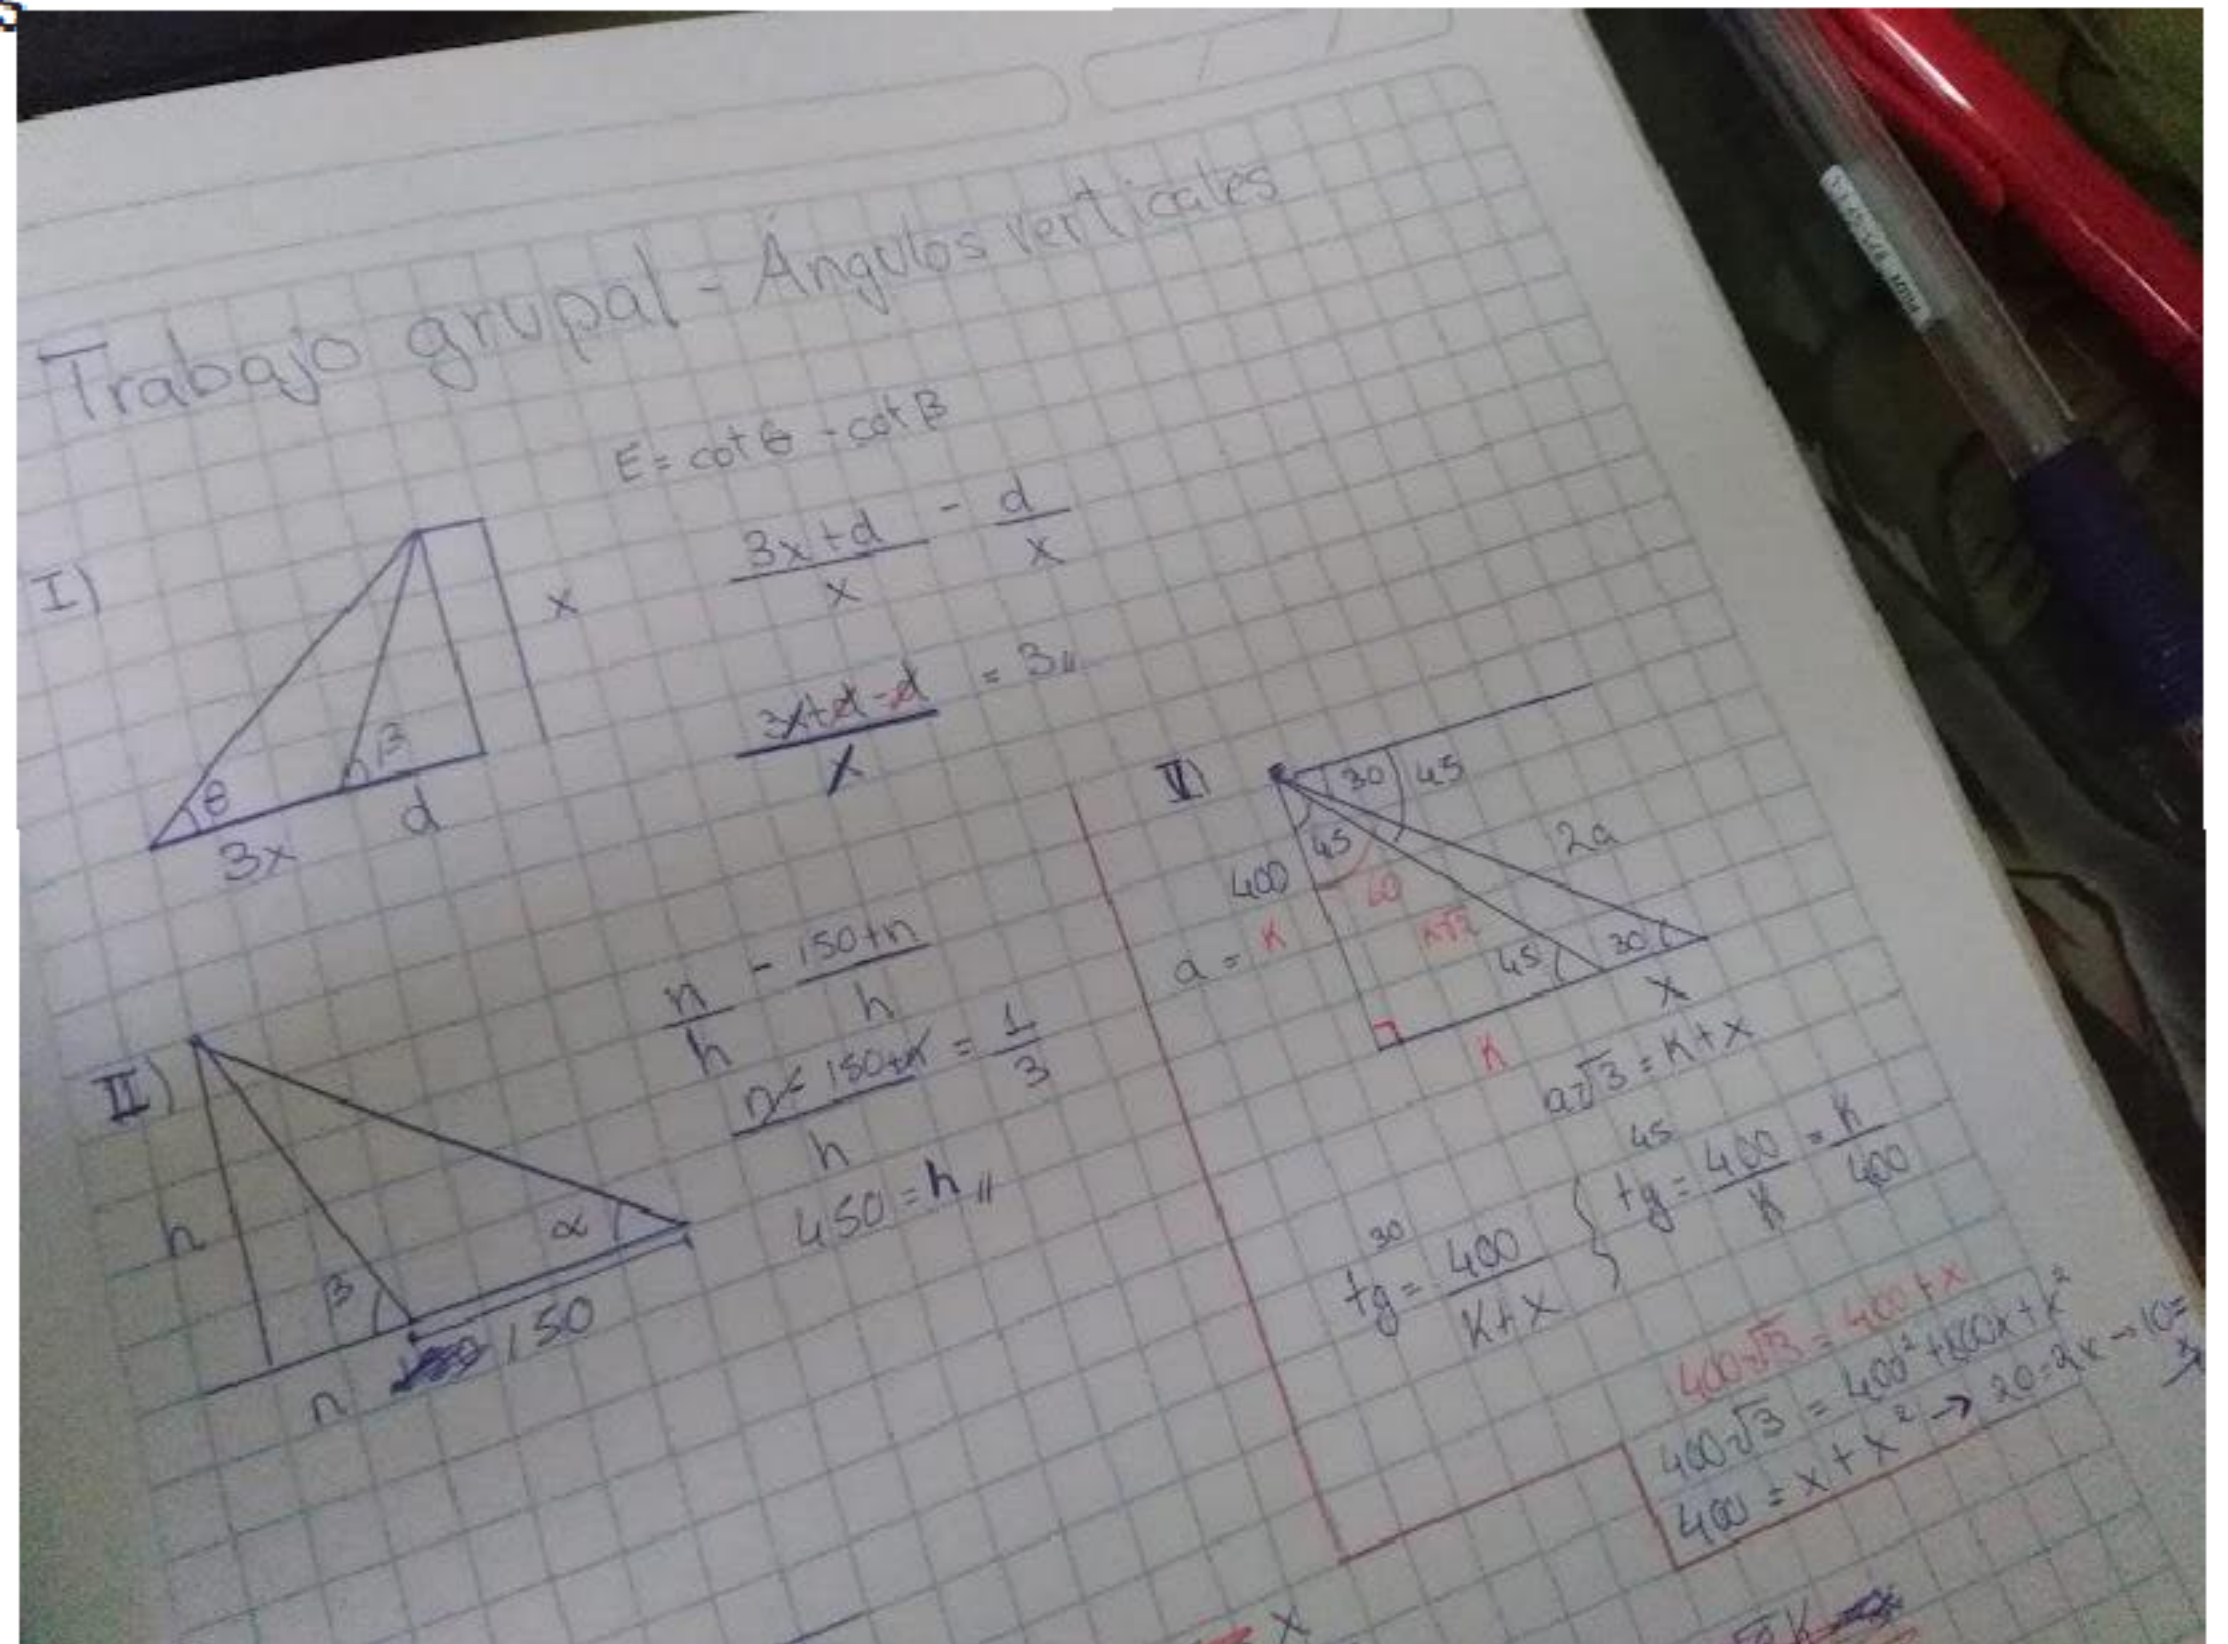 Trabajo grupal - Ángulos verticales
E = cot θ - cot β
I)
x
θ
β
3x
d
3x+d / x - d / x
3x+d-d / x = 3//
II)
h
β
α
n
150
n / h - 150+n / h
n - 150+n / h = 1 / 3
450 = h //
V)
30
45
45
60
400
a = K
K√2
2a
45
30
x
K
a√3 = K+x
30
tg = 400 / K+x
45
tg = 400 / K = K / 400
400√3 = 400+x
400√3 = 400² + 800x + x²
400 = x + x² → 20 = 2x → 10 =
x